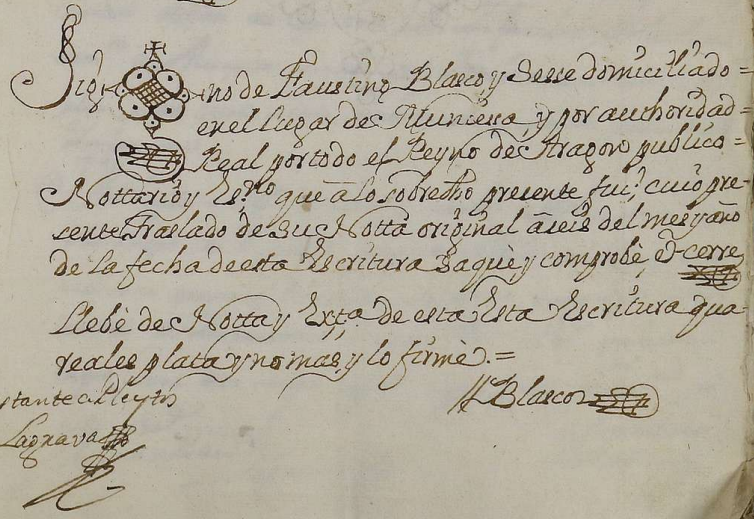 Sig no de Faustino Blasco y Sese domiciliado =
en el Lugar de Muniesa, y por authoridad =
Real por todo el Reyno de Aragon publico =
Nottario y Es.no que â lo sobredho presente fui: cuio pre-
sente Traslado de su Notta original â seis del mes y año
de la fecha de esta Escritura saquè y comprobè, et cerre
Llebè de Notta y Ext.a de esta Esta Escritura qua-
reales plata y no mas, y lo firmè. =
Blasco